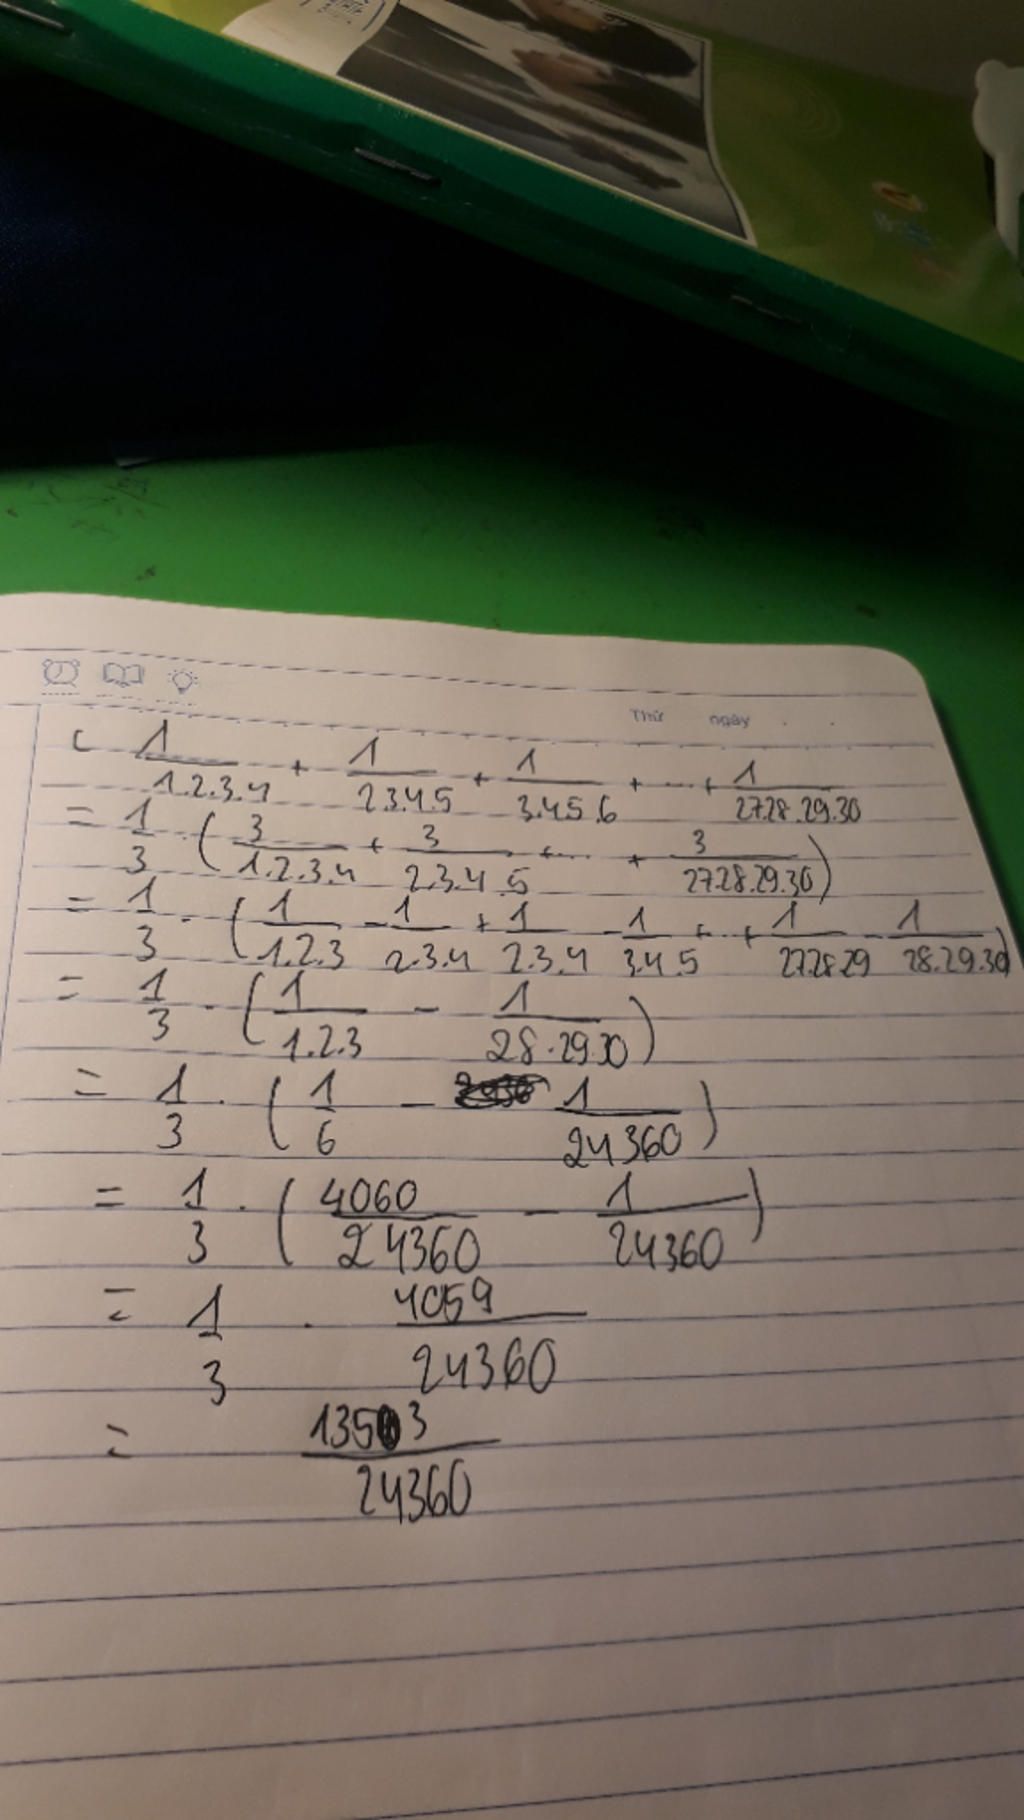 Thứ ngày . .
C 1/1.2.3.4 + 1/2.3.4.5 + 1/3.4.5.6 + ... + 1/27.28.29.30
= 1/3 . ( 3/1.2.3.4 + 3/2.3.4.5 + ... + 3/27.28.29.30 )
= 1/3 . ( 1/1.2.3 - 1/2.3.4 + 1/2.3.4 - 1/3.4.5 + .. + 1/27.28.29 - 1/28.29.30 )
= 1/3 . ( 1/1.2.3 - 1/28.29.30 )
= 1/3 . ( 1/6 - 1/24360 )
= 1/3 . ( 4060/24360 - 1/24360 )
= 1/3 . 4059/24360
= 1353/24360